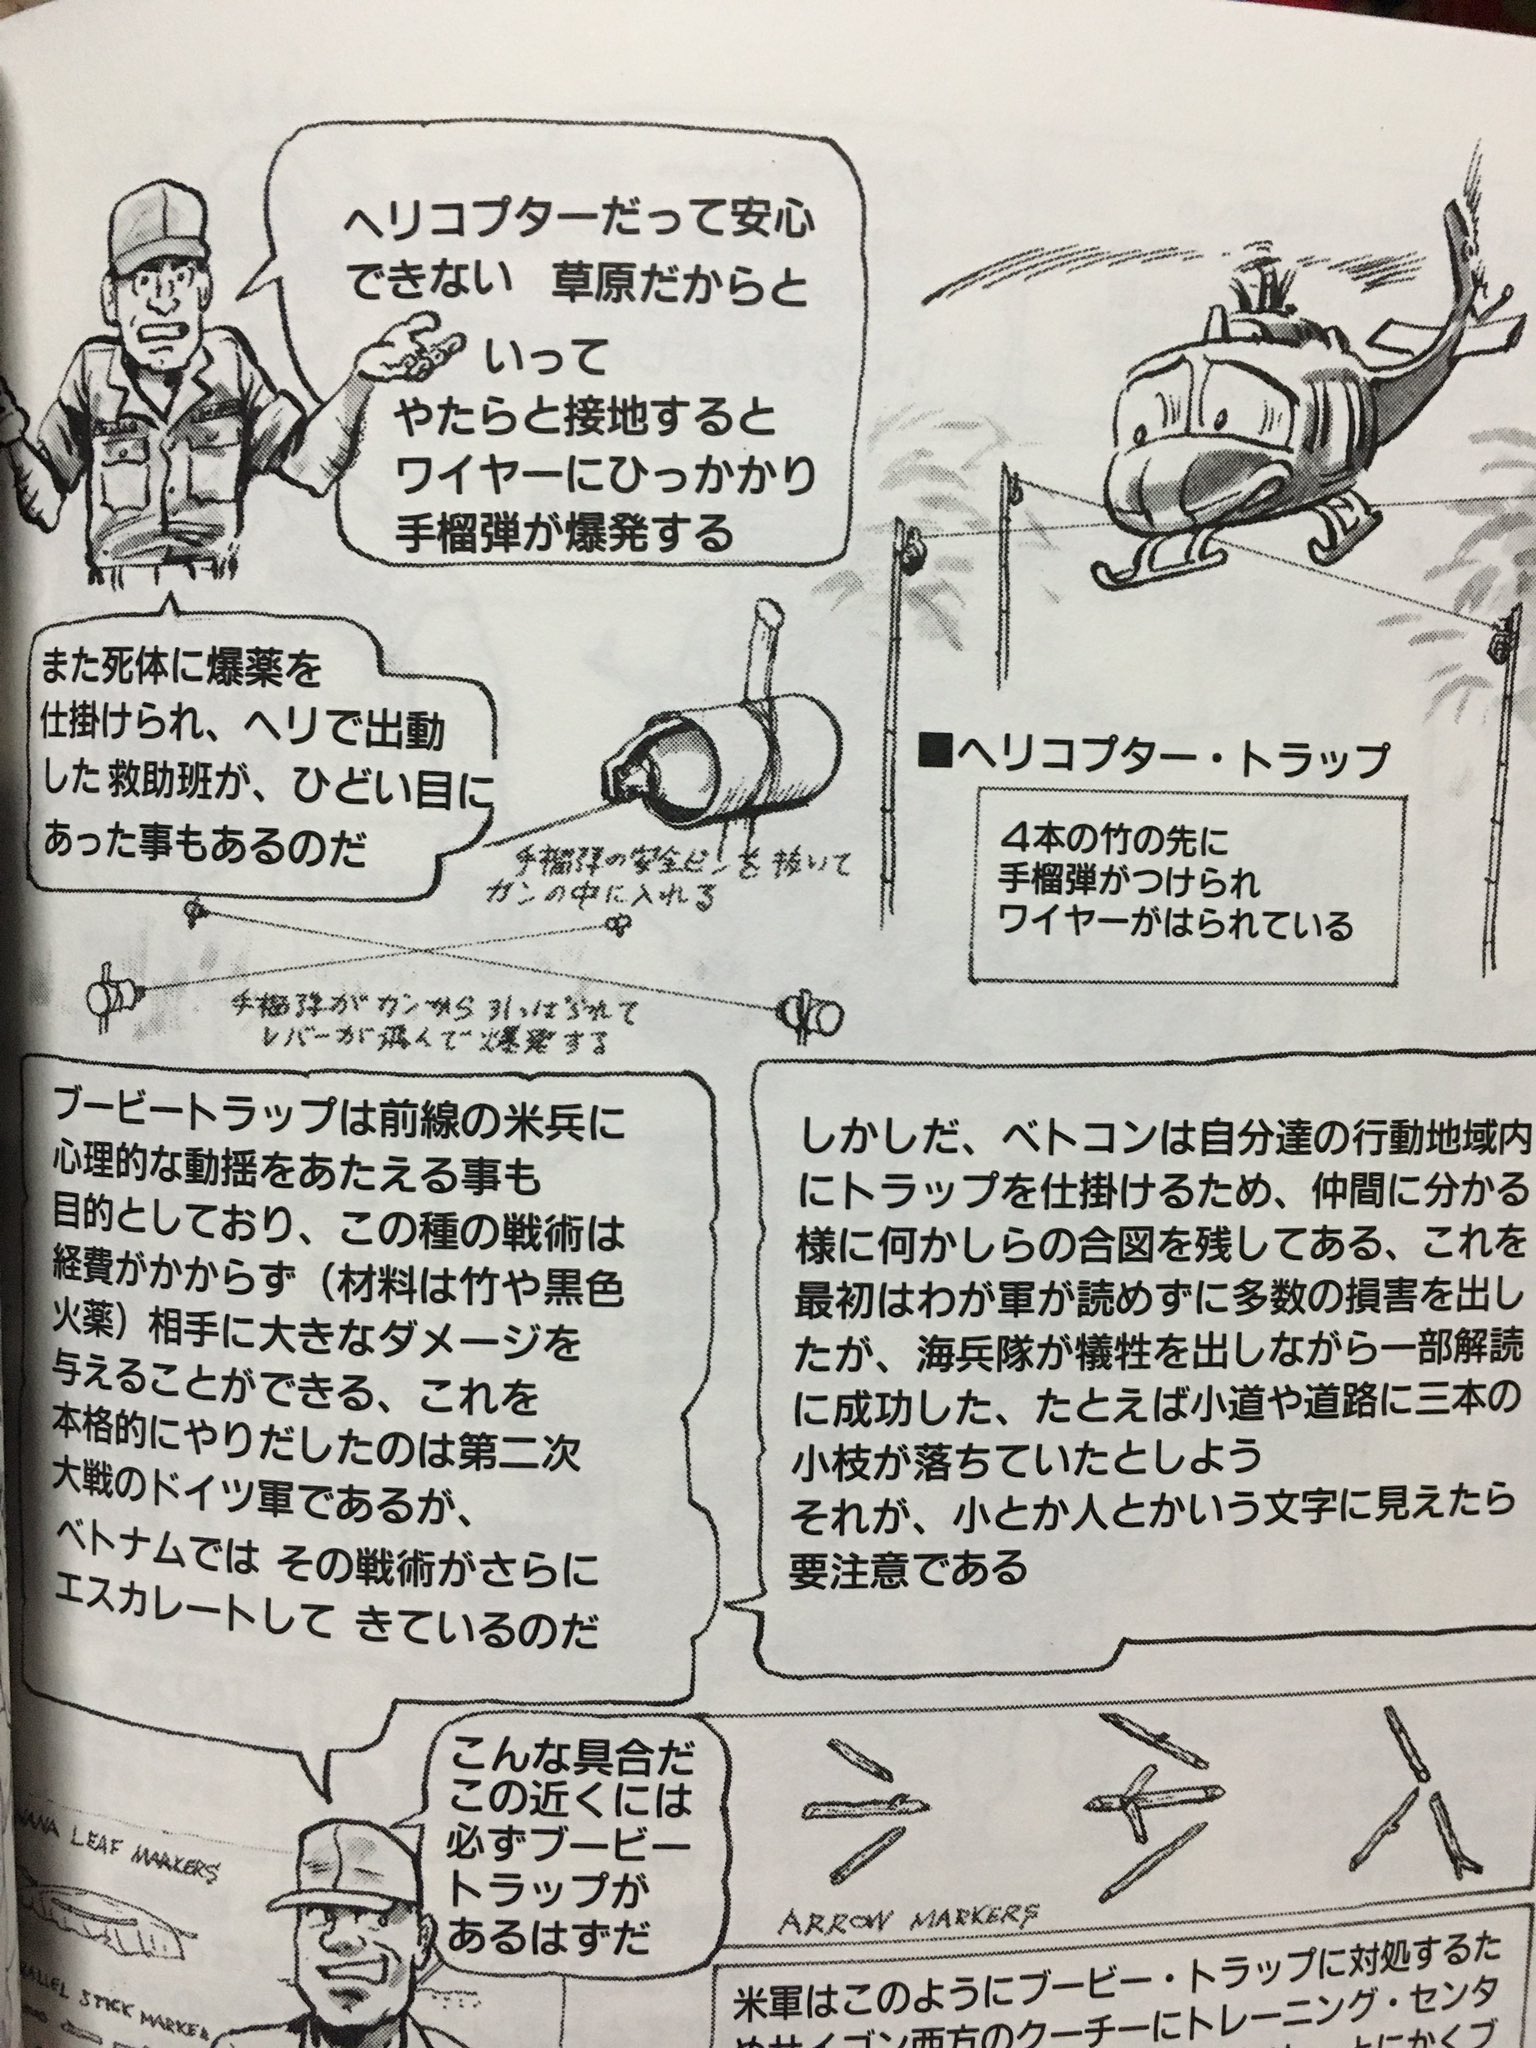 ヘリコプターだって安心
できない 草原だからと
いって
やたらと接地すると
ワイヤーにひっかかり
手榴弾が爆発する
また死体に爆薬を
仕掛けられ、ヘリで出動
した救助班が、ひどい目に
あった事もあるのだ
手榴弾の安全ピンを抜いて
カンの中に入れる
■ヘリコプター・トラップ
4本の竹の先に
手榴弾がつけられ
ワイヤーがはられている
手榴弾がカンから引っぱられて
レバーが飛んで爆発する
ブービートラップは前線の米兵に
心理的な動揺をあたえる事も
目的としており、この種の戦術は
経費がかからず（材料は竹や黒色
火薬）相手に大きなダメージを
与えることができる、これを
本格的にやりだしたのは第二次
大戦のドイツ軍であるが、
ベトナムでは その戦術がさらに
エスカレートして きているのだ
しかしだ、ベトコンは自分達の行動地域内
にトラップを仕掛けるため、仲間に分かる
様に何かしらの合図を残してある、これを
最初はわが軍が読めずに多数の損害を出し
たが、海兵隊が犠牲を出しながら一部解読
に成功した、たとえば小道や道路に三本の
小枝が落ちていたとしよう
それが、小とか人とかいう文字に見えたら
要注意である
こんな具合だ
この近くには
必ずブービー
トラップが
あるはずだ
LEAF MARKERS
STICK MARKE
ARROW MARKERS
米軍はこのようにブービー・トラップに対処するた
めサイゴン西方のクーチーにトレーニング・センタ
とにかくブ